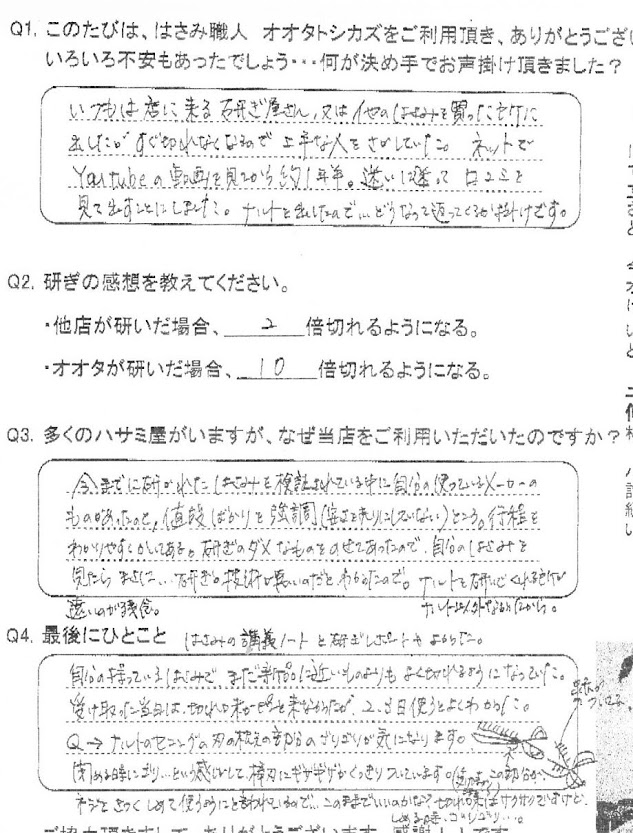 Q1. このたびは、はさみ職人 オオタトシカズをご利用頂き、ありがとうござい
いろいろ不安もあったでしょう･･･何が決め手でお声掛け頂きました？
いつもは店に来る研ぎ屋さん、又は他のはさみを買った所に
出したがすぐ切れなくなるので上手な人をさがしていた。ネットで
Youtubeの動画を見てから約1年半。迷いに迷って口コミを
見て出すことにしました。ナルトを出したので…どうなって返ってくるか掛けです。
Q2. 研ぎの感想を教えてください。
・他店が研いだ場合、 2 倍切れるようになる。
・オオタが研いだ場合、 10 倍切れるようになる。
Q3. 多くのハサミ屋がいますが、なぜ当店をご利用いただいたのですか？
今までに研がれたはさみを検証されている中に自分の使っているメーカーの
ものがあったのと、値段ばかりを強調(安さを売りにしていない)ところ。行程を
わかりやすくかいてある。研ぎのダメなものをのせてあったので、自分のはさみを
見たらまさに…研ぎの技術が悪いのだとわかったので。ナルトを研いでくれる所が
遠いのが残念。
Q4. 最後にひとこと はさみの講義ノートと研ぎレポートもよかった。
自分の持っているはさみで、まだ新品に近いものよりもよく切れるようになっていた。
受け取った当日は、切れ味がピンと来なかったが、2、3日使うとよくわかった。
Q→ナルトのセニングの刃の根元の部分のザリザリが気になります。
閉める時にゴリ…という感じがして、棒刃にギザギザがくっきりついています。この部分が、
ネジをきつくしめて使うようにと言われているので…このままでいいのかな？切れ味はサクサクですけど、
しめる時、ゴリゴリ…。
ご協力頂きまして、ありがとうございます。感謝